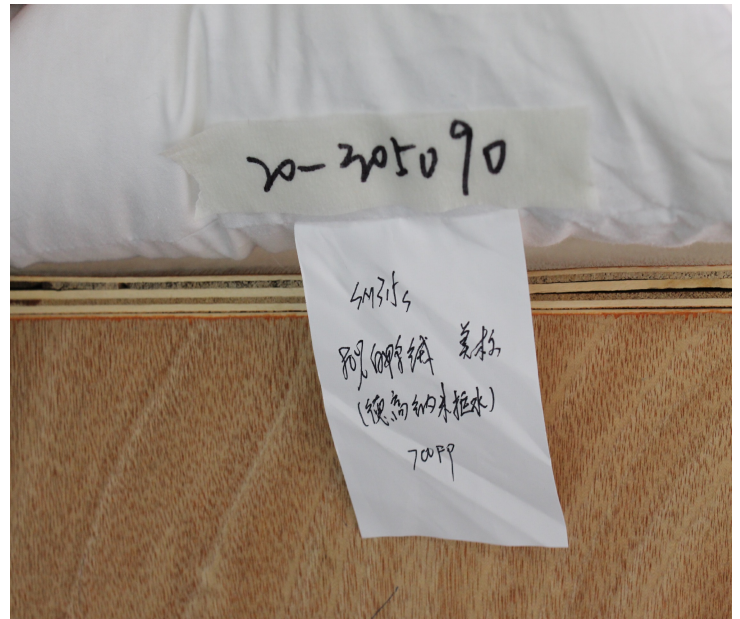 20-305090
SM315
80% 白鸭绒 美标
(德高纳米拒水)
700FP